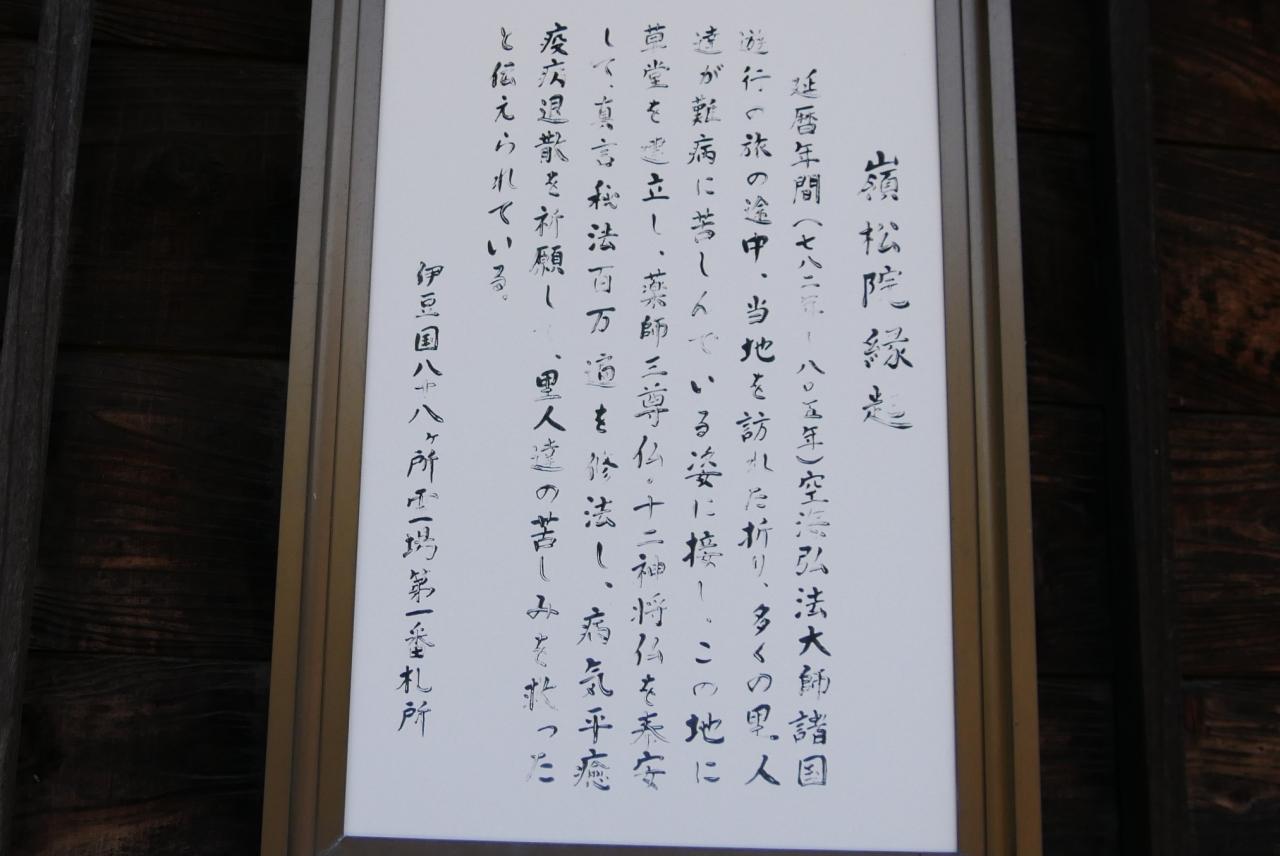 嶺松院縁起
延暦年間(七八二年〜八〇五年)空海弘法大師諸国
遊行の旅の途中、当地を訪れた折り、多くの里人
達が難病に苦しんでいる姿に接し、この地に
草堂を建立し、薬師三尊仏・十二神将仏を奉安
して、真言秘法百万遍を修法し、病気平癒
疫病退散を祈願して、里人達の苦しみを救った
と伝えられている。
伊豆国八十八ヶ所霊場第一番札所